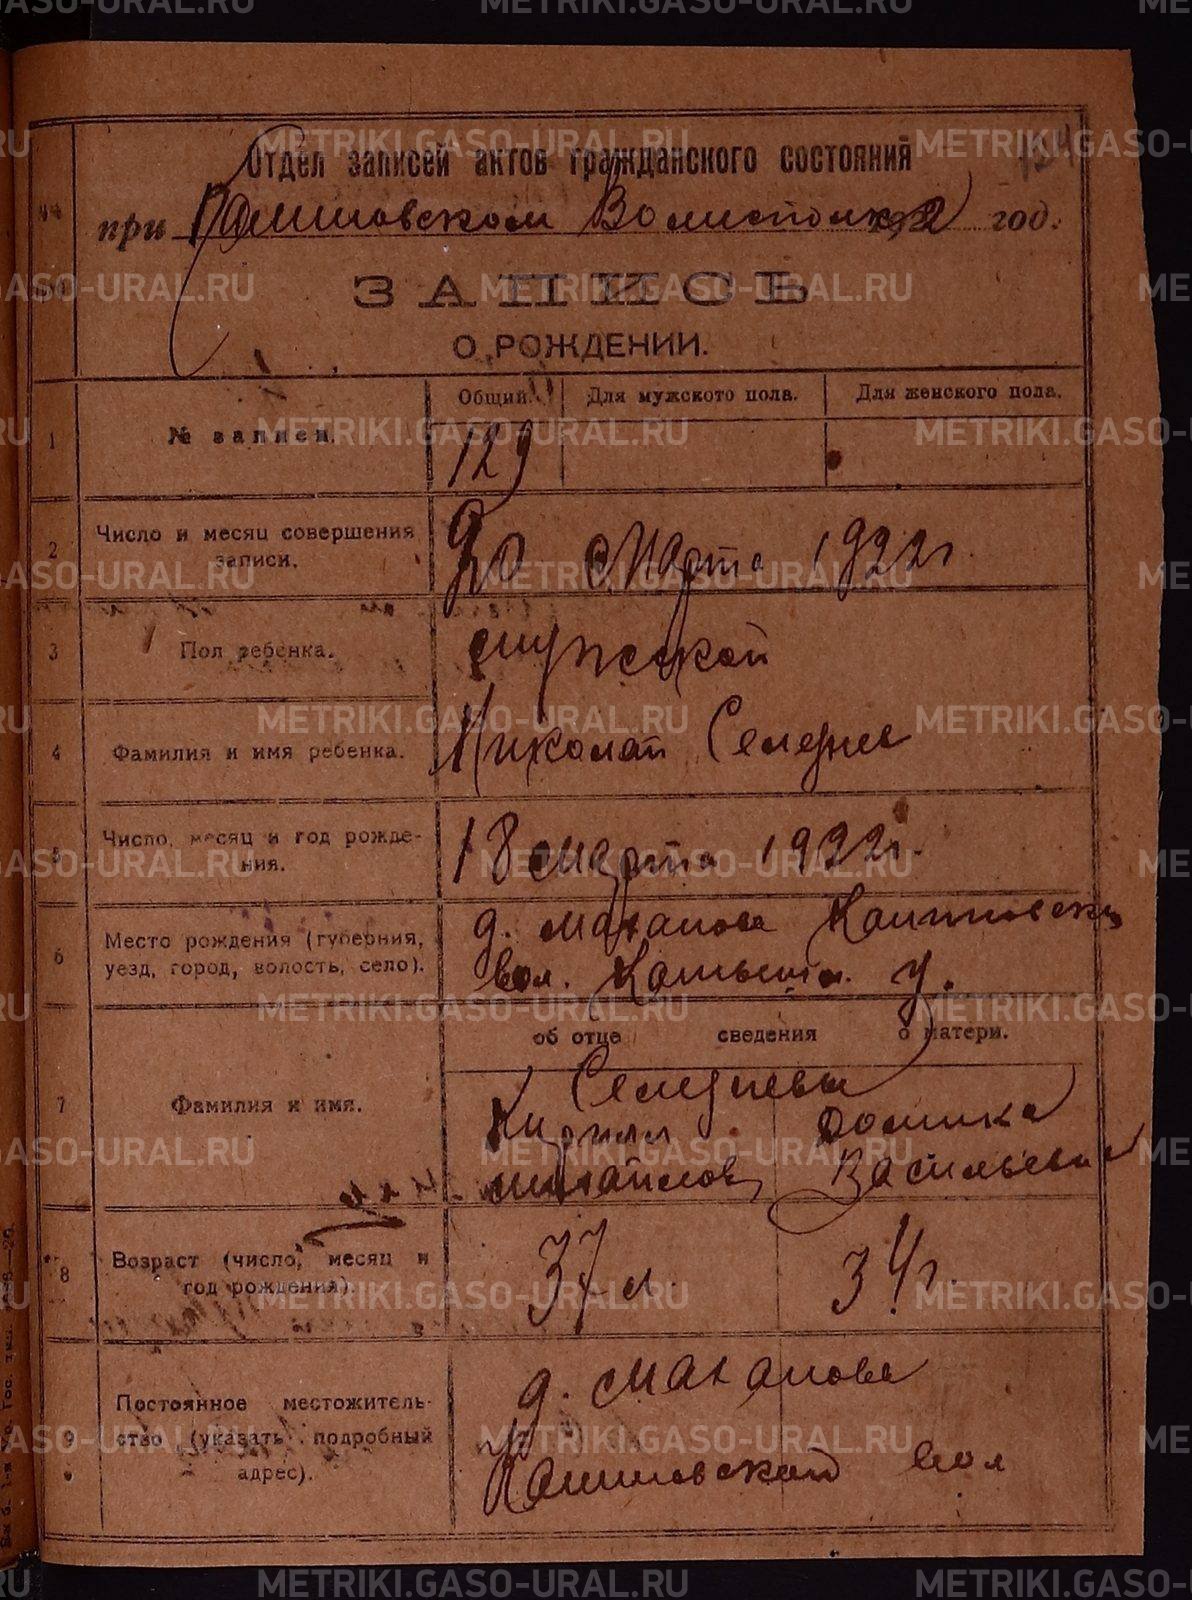 METRIKI.GASO-URAL.RU
124
Отдел записей актов гражданского состояния
при год.
ЗАПИСЬ
О РОЖДЕНИИ.
Общий. Для мужского пола. Для женского пола.
1 № записи. 129
2 Число и месяц совершения
записи.
20 Марта 1922 г.
3 Пол ребенка. мужской
4 Фамилия и имя ребенка. Николай Селезнев
5 Число, месяц и год рожде-
ния.
18 Марта 1922 г.
6 Место рождения (губерния,
уезд, город, волость, село).
д.
вол. у.
об отце сведения о матери.
7 Фамилия и имя.
Селезневы
Кирилл Домника
Михайлов Васильевна
8 Возраст (число, месяц и
год рождения).
37 л. 34 г.
9 Постоянное местожитель-
ство (указать подробный
адрес).
д.
вол